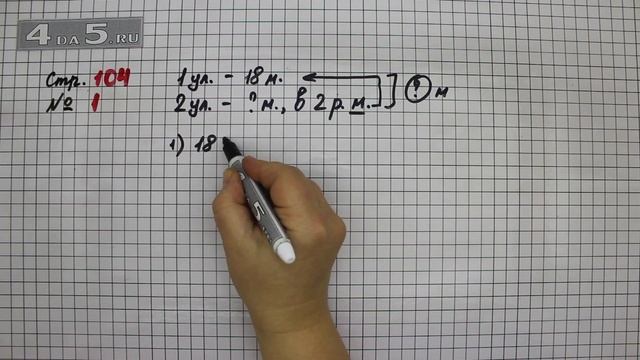 4DA5.RU
Стр. 104
№ 1
1 ул. - 18 м.
2 ул. - ? м., в 2 р. м. ? м
1) 18
5